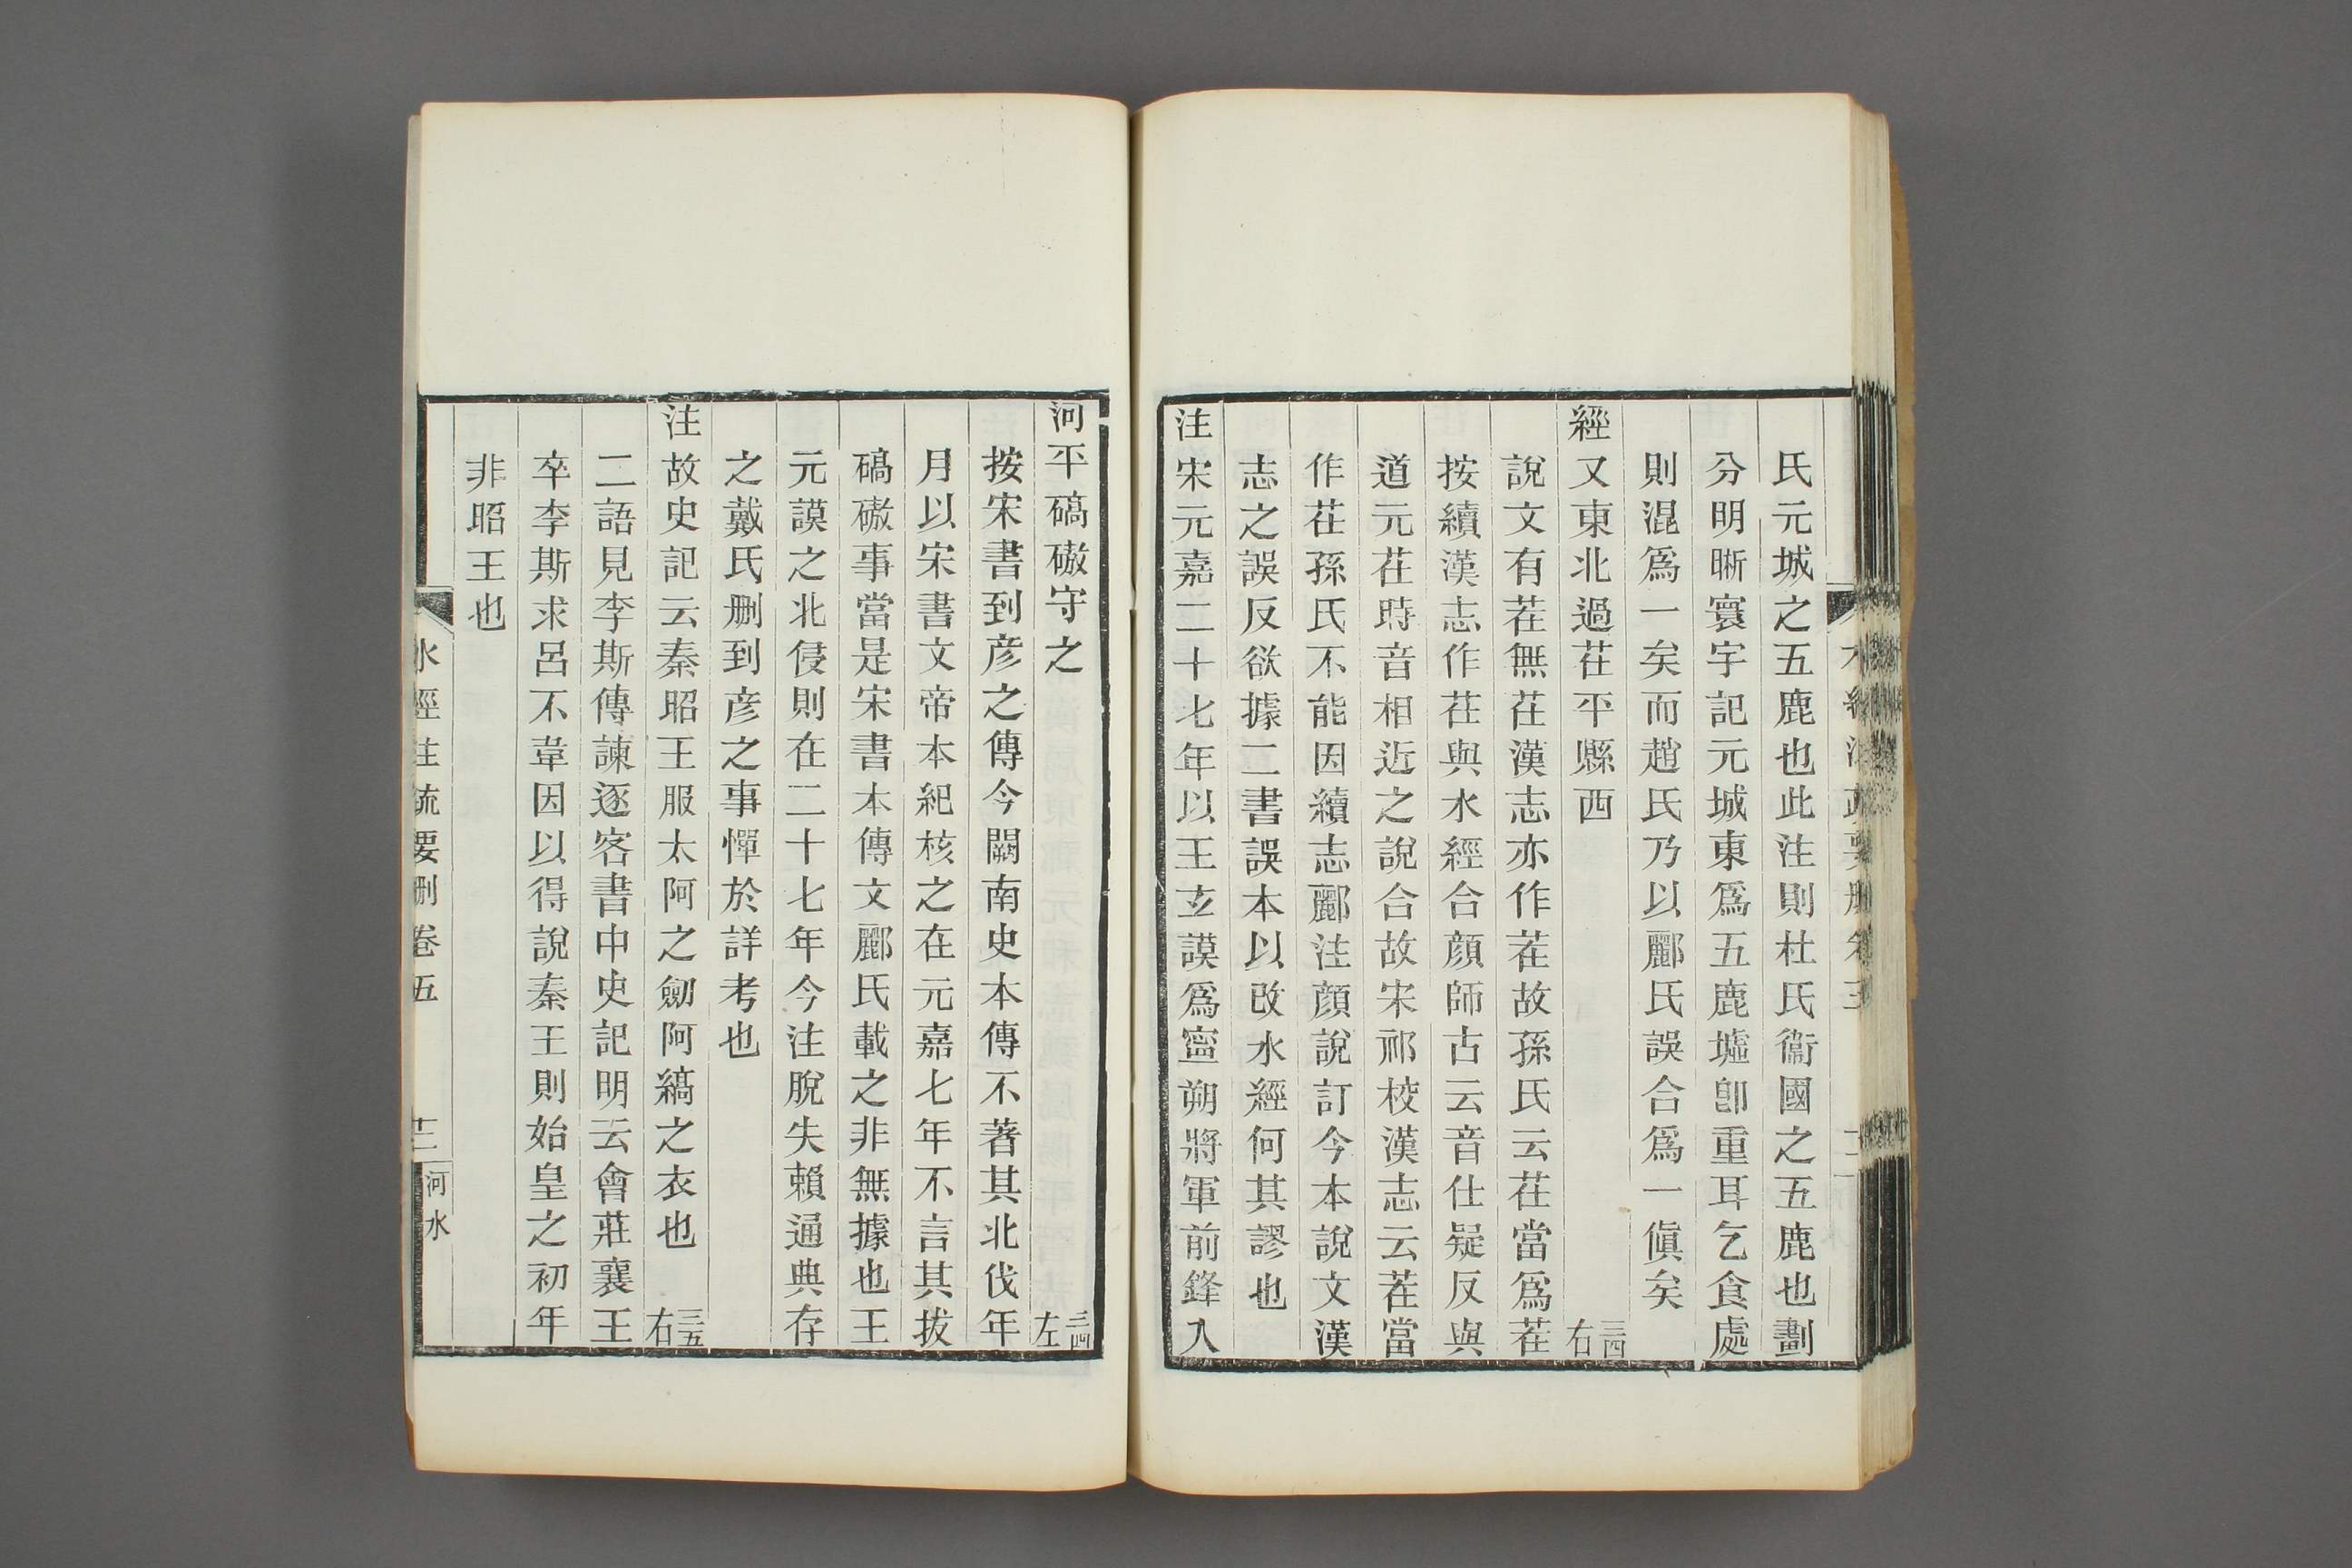 氏元城之五鹿也此注則杜氏衞國之五鹿也劃
分明晰寰宇記元城東爲五鹿墟卽重耳乞食處
則混爲一矣而趙氏乃以酈氏誤合爲一傎矣
經又東北過茌平縣西 三四右
說文有茬無茌漢志亦作茬故孫氏云茌當爲茬
按續漢志作茌與水經合顏師古云音仕疑反與
道元茌時音相近之說合故宋祁校漢志云茬當
作茌孫氏不能因續志酈注顏說訂今本說文漢
志之誤反欲據二書誤本以改水經何其謬也
注宋元嘉二十七年以王玄謨爲寧朔將軍前鋒入
河平碻磝守之 三四左
按宋書到彦之傳今闕南史本傳不著其北伐年
月以宋書文帝本紀核之在元嘉七年不言其拔
碻磝事當是宋書本傳文酈氏載之非無據也王
元謨之北侵則在二十七年今注脫失賴通典存
之戴氏刪到彦之事憚於詳考也
注故史記云秦昭王服太阿之劒阿縞之衣也 三五右
二語見李斯傳諫逐客書中史記明云會莊襄王
卒李斯求呂不韋因以得說秦王則始皇之初年
非昭王也
水經注疏要刪卷五 十二 河水